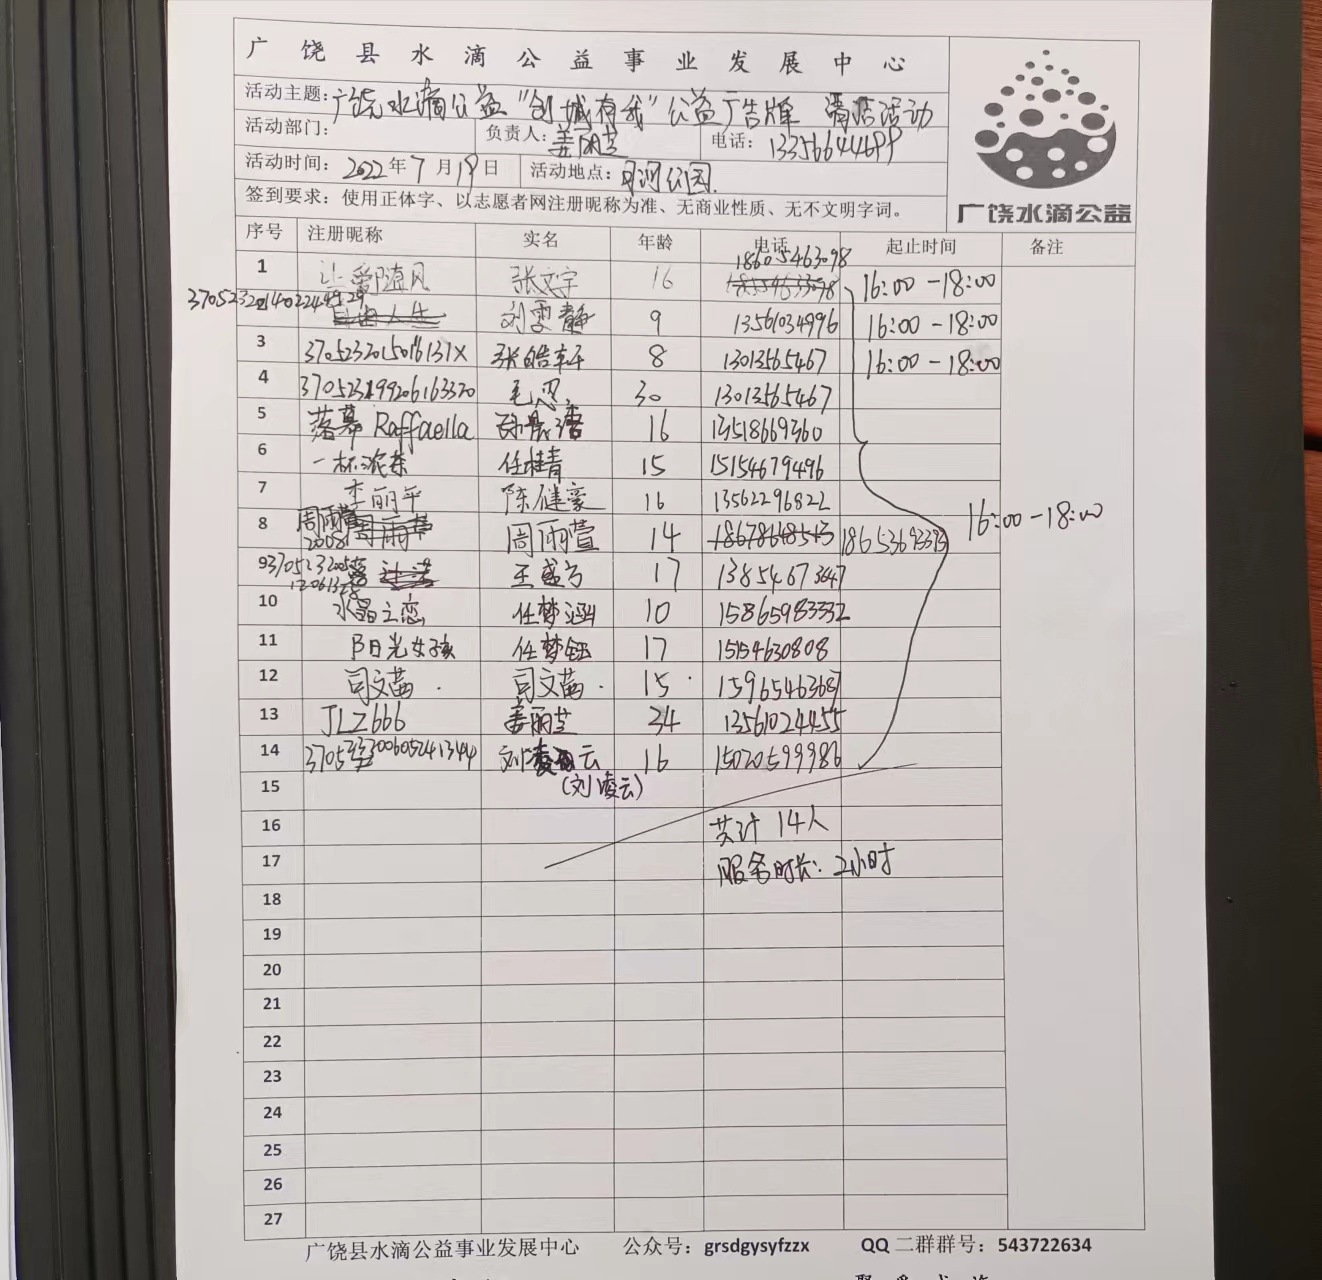 广饶县水滴公益事业发展中心
活动主题：广饶水滴公益“创城有我”公益广告牌 清洁活动
活动部门： 负责人：姜丽芝 电话：13356644699
活动时间：2022年7月19日 活动地点：月河公园.
签到要求：使用正体字、以志愿者网注册昵称为准、无商业性质、无不文明字词。
广饶水滴公益
序号 注册昵称 实名 年龄 电话 起止时间 备注
18605463098
1 让爱随风 张文宇 16 16:00-18:00
刘雯静 9 13561034996 16:00-18:00
3 张皓轩 8 13013565467 16:00-18:00
4 370523199206163320 毛恩 30 13013565467
5 落幕 Raffaella 16 13518669360
6 一杯浓茶 任桂青 15 15154679496
7 李丽平 陈健豪 16 13562296822
16:00-18:00
8 周雨萱 2008 周雨萱 14 18678648543 18653693393
9 17 13854673647
10 水晶之恋 任梦涵 10 15865983332
11 阳光女孩 任梦钰 17 15154630808
12 司文菡 司文菡 15 15965463687
13 JLZ666 姜丽芝 34 13561024455
14 刘凌云 16 15020599986
15 (刘凌云)
16 共计 14人
17 服务时长：2小时
18
19
20
21
22
23
24
25
26
27
广饶县水滴公益事业发展中心 公众号：grsdgysyfzzx QQ 二群群号：543722634